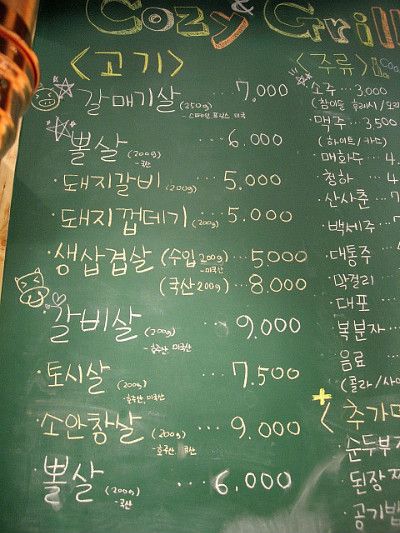 Cozy & Grill
<고기>
갈매기살 (250g) ... 7,000
뽈살 (200g) ... 6.000
-국산
·돼지갈비 (200g) ... 5.000
·돼지껍데기 (200g) ... 5.000
·생삼겹살 (수입 200g) ... 5000
-미국산
(국산 200g) ... 8.000
갈비살 (200g) ... 9,000
-호주산 미국산
·토시살 (200g) ... 7.500
-호주산, 미국산
·소안창살 (200g) ... 9.000
-호주산
·뽈살 (200g) ... 6,000
-국산
<주류>
소주 ... 3,000
(참이슬
·맥주 ... 3,500
(하이트/카스)
매화수 ... 4.
청하 ... 4.
·산사춘 ... 7.
·백세주 ... 7
·대통주
·막걸리
·대포
·복분자
·음료
(콜라/사
+
<추가메
·순두부
·된장찌
·공기밥